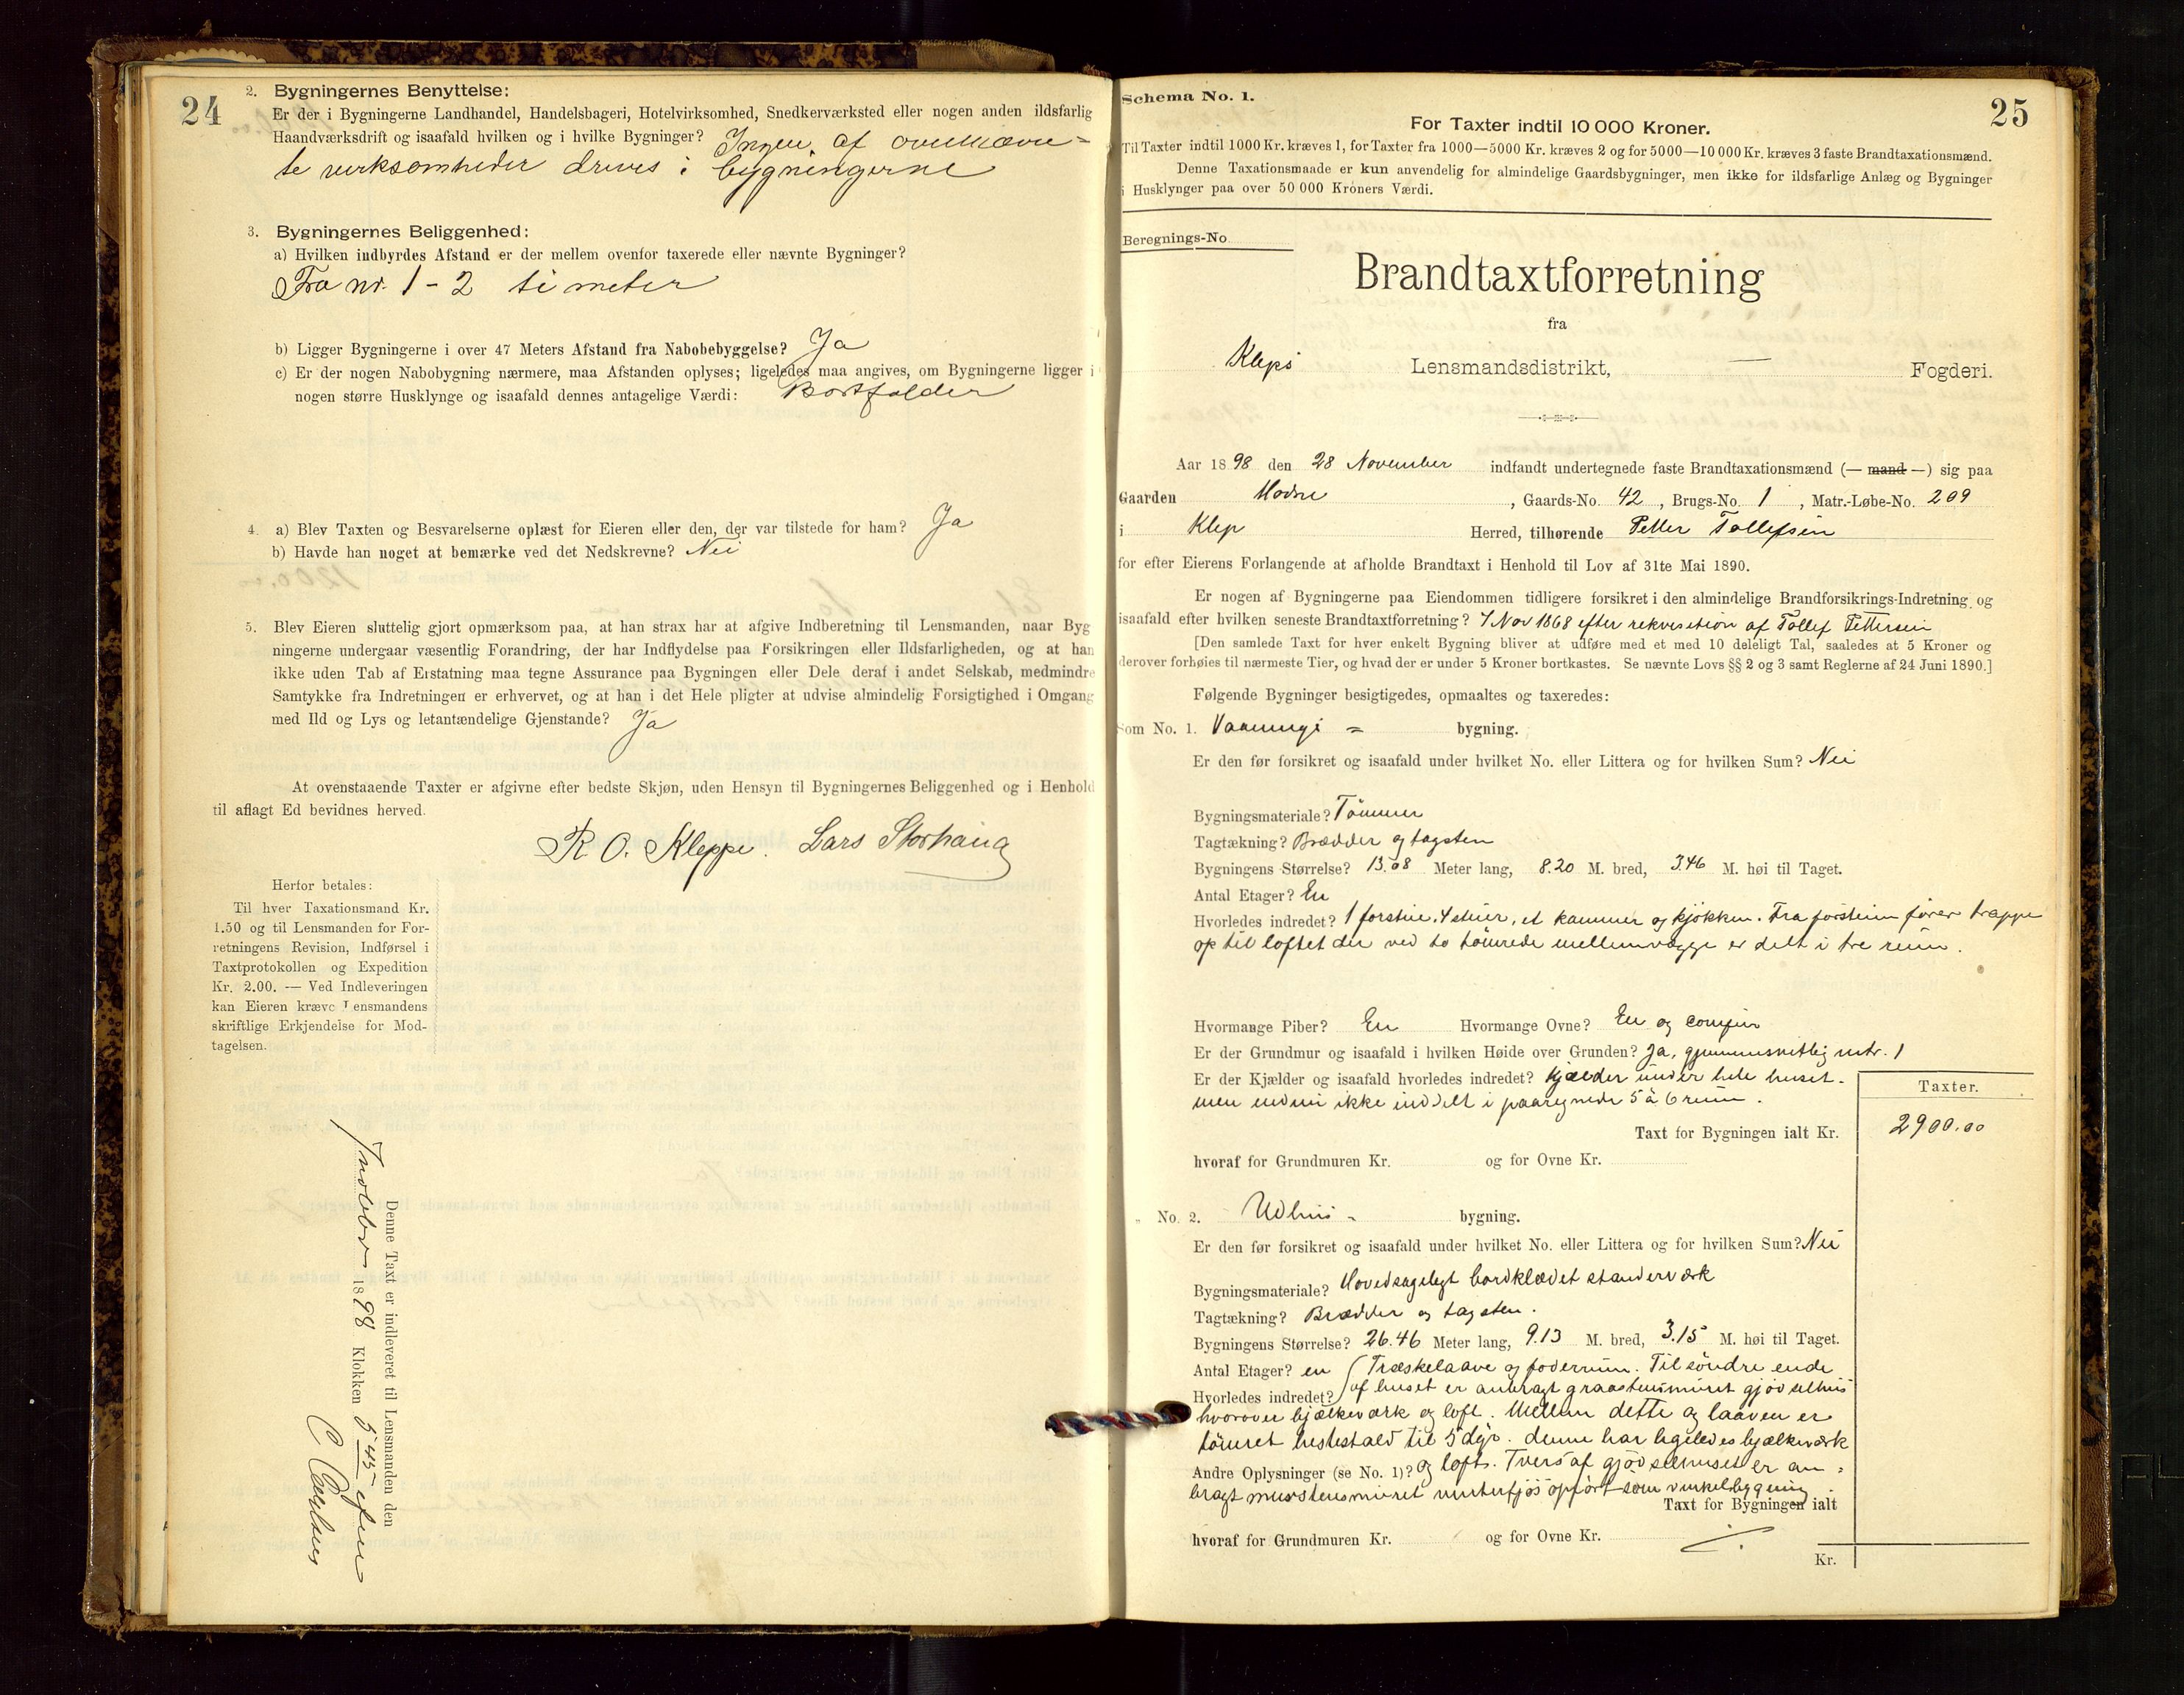 24
2. Bygningernes Benyttelse:
Er der i Bygningerne Landhandel, Handelsbageri, Hotelvirksomhed, Snedkerværksted eller nogen anden ildsfarlig
Haandværksdrift og isaafald hvilken og i hvilke Bygninger? Ingen af ovennævn-
te virksomheder drives i bygningerne
3. Bygningernes Beliggenhed:
a) Hvilken indbyrdes Afstand er der mellem ovenfor taxerede eller nævnte Bygninger?
Fra nr. 1 - 2 ti meter
b) Ligger Bygningerne i over 47 Meters Afstand fra Nabobebyggelse? Ja
c) Er der nogen Nabobygning nærmere, maa Afstanden oplyses; ligeledes maa angives, om Bygningerne ligger i
nogen større Husklynge og isaafald dennes antagelige Værdi: Bortfalder
4. a) Blev Taxten og Besvarelserne oplæst for Eieren eller den, der var tilstede for ham? Ja
b) Havde han noget at bemærke ved det Nedskrevne? Nei
5. Blev Eieren sluttelig gjort opmærksom paa, at han strax har at afgive Indberetning til Lensmanden, naar Byg
ningerne undergaar væsentlig Forandring, der har Indflydelse paa Forsikringen eller Ildsfarligheden, og at han
ikke uden Tab af Erstatning maa tegne Assurance paa Bygningen eller Dele deraf i andet Selskab, medmindre
Samtykke fra Indretningen er erhvervet, og at han i det Hele pligter at udvise almindelig Forsigtighed i Omgang
med Ild og Lys og letantændelige Gjenstande? Ja
At ovenstaaende Taxter er afgivne efter bedste Skjøn, uden Hensyn til Bygningernes Beliggenhed og i Henhold
til aflagt Ed bevidnes herved.
R O. Kleppe. Lars Storhaug
Herfor betales:
Til hver Taxationsmand Kr.
1.50 og til Lensmanden for For-
retningens Revision, Indførsel i
Taxtprotokollen og Expedition
Kr. 2.00. — Ved Indleveringen
kan Eieren kræve Lensmandens
skriftlige Erkjendelse for Mod-
tagelsen.
Denne Taxt er indleveret til Lensmanden den
1898 Klokken 5 45
25
Schema No. 1.
For Taxter indtil 10 000 Kroner.
Til Taxter indtil 1000 Kr. kræves 1, for Taxter fra 1000—5000 Kr. kræves 2 og for 5000—10 000 Kr. kræves 3 faste Brandtaxationsmænd.
Denne Taxationsmaade er kun anvendelig for almindelige Gaardsbygninger, men ikke for ildsfarlige Anlæg og Bygninger
i Husklynger paa over 50 000 Kroners Værdi.
Beregnings-No
Brandtaxtforretning
fra
Kleps Lensmandsdistrikt, — Fogderi.
Aar 1898 den 28 November indfandt undertegnede faste Brandtaxationsmænd (— mand —) sig paa
Gaarden , Gaards-No. 42, Brugs-No. 1, Matr.-Løbe-No. 209
i Klep Herred, tilhørende Petter Tollefsen
for efter Eierens Forlangende at afholde Brandtaxt i Henhold til Lov af 31te Mai 1890.
Er nogen af Bygningerne paa Eiendommen tidligere forsikret i den almindelige Brandforsikrings-Indretning og
isaafald efter hvilken seneste Brandtaxtforretning? 7 Nov 1868 efter rekvisition af Tollef Pettersen
[Den samlede Taxt for hver enkelt Bygning bliver at udføre med et med 10 deleligt Tal, saaledes at 5 Kroner og
derover forhøies til nærmeste Tier, og hvad der er under 5 Kroner bortkastes. Se nævnte Lovs §§ 2 og 3 samt Reglerne af 24 Juni 1890.]
Følgende Bygninger besigtigedes, opmaaltes og taxeredes:
Som No. 1. Vaanings = bygning.
Er den før forsikret og isaafald under hvilket No. eller Littera og for hvilken Sum? Nei
Bygningsmateriale? Tömmer
Tagtækning? Brædder og tagsten
Bygningens Størrelse? 13.08 Meter lang, 8.20 M. bred, 3.46 M. høi til Taget.
Antal Etager? En
Hvorledes indredet? 1 forstue, 4 stuer, et kammer og kjökken. Fra forstuen förer trappe
op til loftet der ved to tömrede mellemvægge er delt i tre rum.
Hvormange Piber? En Hvormange Ovne? En og comfur
Er der Grundmur og isaafald i hvilken Høide over Grunden? Ja, gjennemsnitlig mtr. 1
Er der Kjælder og isaafald hvorledes indredet? Kjælder under hele huset.
men endnu ikke inddelt i paaregnede 5 à 6 rum.
Taxter.
Taxt for Bygningen ialt Kr. 2900.00
hvoraf for Grundmuren Kr. og for Ovne Kr.
" No. 2. Udhus - bygning.
Er den før forsikret og isaafald under hvilket No. eller Littera og for hvilken Sum? Nei
Bygningsmateriale? Hovedsageligt bordklædet standerværk
Tagtækning? Brædder og tagsten.
Bygningens Størrelse? 26.46 Meter lang, 9.13 M. bred, 3.15 M. høi til Taget.
Antal Etager? en Træskelaave og foderrum. Til söndre ende
Hvorledes indredet? af huset er anbragt graastensmuret gjödselhus
hvorover bjælkeværk og loft. Mellem dette og laaven er
tömret hestestald til 5 dyr. denne har ligeledes bjælkeværk
Andre Oplysninger (se No. 1)? og loft. Tvers af gjödselhuset er an-
bragt murstensmuret vinterfjös opfört som vinkelbygning
Taxt for Bygningen ialt
hvoraf for Grundmuren Kr. og for Ovne Kr.
Kr.